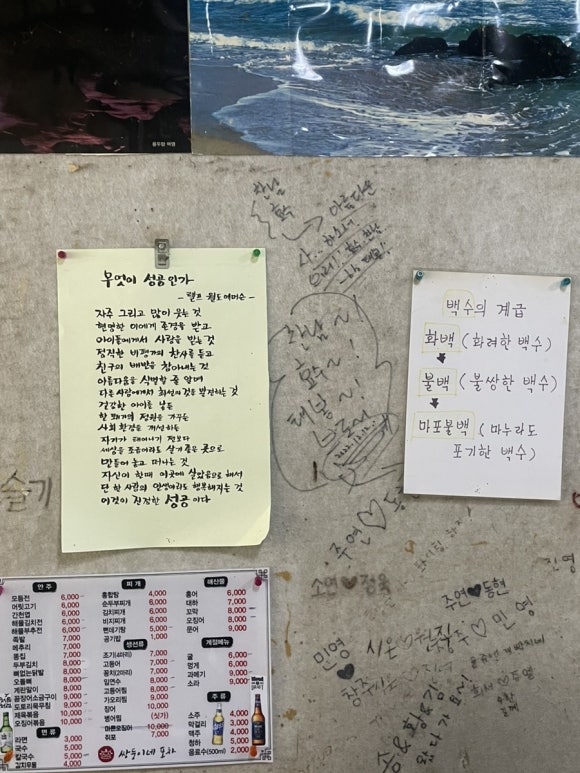 용두암 여명
찬남
아름다운
무엇이 성공인가
- 랠프 월도 에머슨 -
자주 그리고 많이 웃는 것
현명한 이에게 존경을 받고
아이들에게서 사랑을 받는 것
정직한 비평가의 찬사를 듣고
친구의 배반을 참아내는 것
아름다움을 식별할 줄 알며
다른 사람에게서 최선의 것을 발견하는 것
건강한 아이를 낳든
한 뙈기의 정원을 가꾸든
사회 환경을 개선하든
자기가 태어나기 전보다
세상을 조금이라도 살기 좋은 곳으로
만들어 놓고 떠나는 것
자신이 한때 이곳에 살았음으로 해서
단 한 사람의 인생이라도 행복해지는 것
이것이 진정한 성공이다
백수의 계급
화백 (화려한 백수)
불백 (불쌍한 백수)
마포불백 (마누라도
포기한 백수)
슬기
주연♡
소연♥정욱
주연♥동현
진영
민영
시온♡
♡민영
안주
모듬전 6,000
머릿고기 6,000
간천엽 6,000
해물김치전 6,000
해물부추전 6,000
족발 7,000
메추리 7,000
똥집 7,000
두부김치 8,000
뼈없는닭발 8,000
오돌뼈 8,000
계란말이 8,000
꼼장어소금구이 9,000
도토리묵무침 9,000
제육볶음 10,000
오징어볶음 10,000
면류
라면 3,000
국수 5,000
칼국수 5,000
김치우동 4,000
찌개
홍합탕 4,000
순두부찌개 6,000
김치찌개 6,000
비지찌개 6,000
뻔데기탕 5,000
공기밥 1,000
생선류
조기(4마리) 7,000
고등어 7,000
꽁치(2마리) 7,000
임연수 8,000
고등어찜 8,000
가오리찜 9,000
장어 10,000
병어찜 (싯가)
마른오징어 10,000
쥐포 7,000
쌍둥이네 포차
해산물
홍어 6,000
대하 7,000
막창 8,000
오징어 8,000
문어 9,000
계절메뉴
굴 6,000
멍게 6,000
과메기 9,000
소라 9,000
주류
소주 4,000
막걸리 3,000
맥주 4,000
청하 5,000
음료수(500ml) 2,000